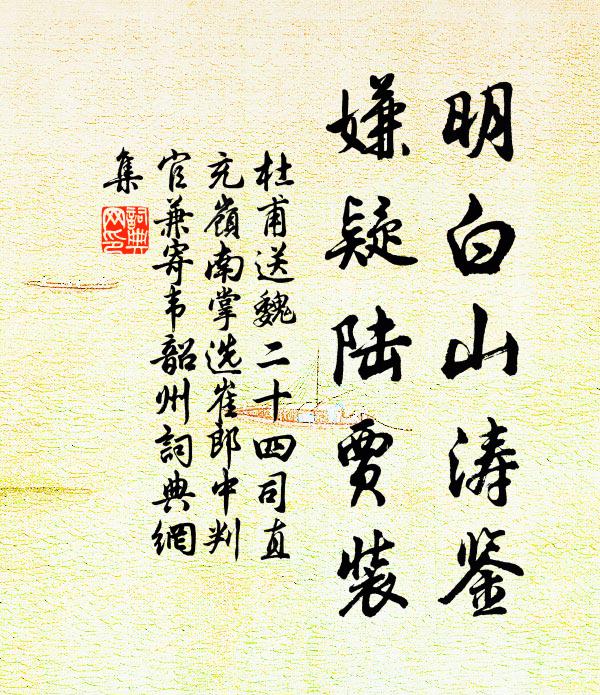 明白山涛鉴
嫌疑陆贾装
杜甫送魏二十四司直
充嶺南掌选崔郎中判
官兼寄韦韶州詞典網
集
詞典
网印